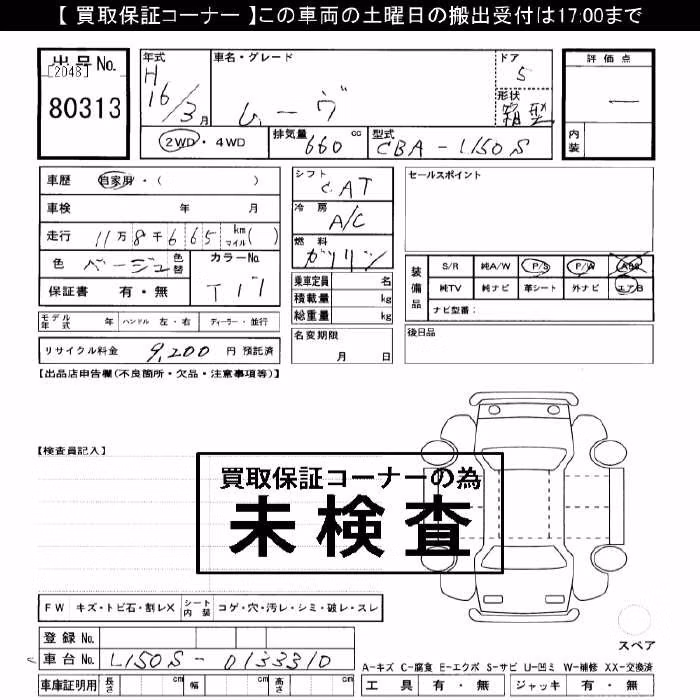 【 買取保証コーナー 】この車両の土曜日の搬出受付は17:00まで
出品No.
[2048]
80313
年式
H
16/3月
車名・グレード
ムーヴ
ドア
5
形状
箱型
2WD・4WD
排気量
660 cc
型式
CBA-L150S
評価点
—
内装
車歴 自家用・( )
車検 年 月
走行 11万8千665 km マイル( )
色 ベージュ 色替
カラーNo.
T17
保証書 有・無
モデル年式 年 ハンドル 左・右 ディーラー・並行
リサイクル料金 9,200 円 預託済
シフト
CAT
冷房
A/C
燃料
ガソリン
乗車定員 名
積載量 kg
総重量 kg
名変期限
月 日
セールスポイント
装備品
S/R 純A/W P/S P/W ABS
純TV 純ナビ 革シート 外ナビ エアB
ナビ型番:
後日品
【出品店申告欄(不良箇所・欠品・注意事項等)】
【検査員記入】
買取保証コーナーの為
未検査
FW キズ・トビ石・割レX シート内装 コゲ・穴・汚レ・シミ・破レ・スレ
登録No.
車台No. L150S-0133310
車庫証明用 長さ cm 幅 cm 高さ cm
スペア
A-キズ C-腐食 E-エクボ S-サビ U-凹ミ W-補修 XX-交換済
工具 有・無 ジャッキ 有・無